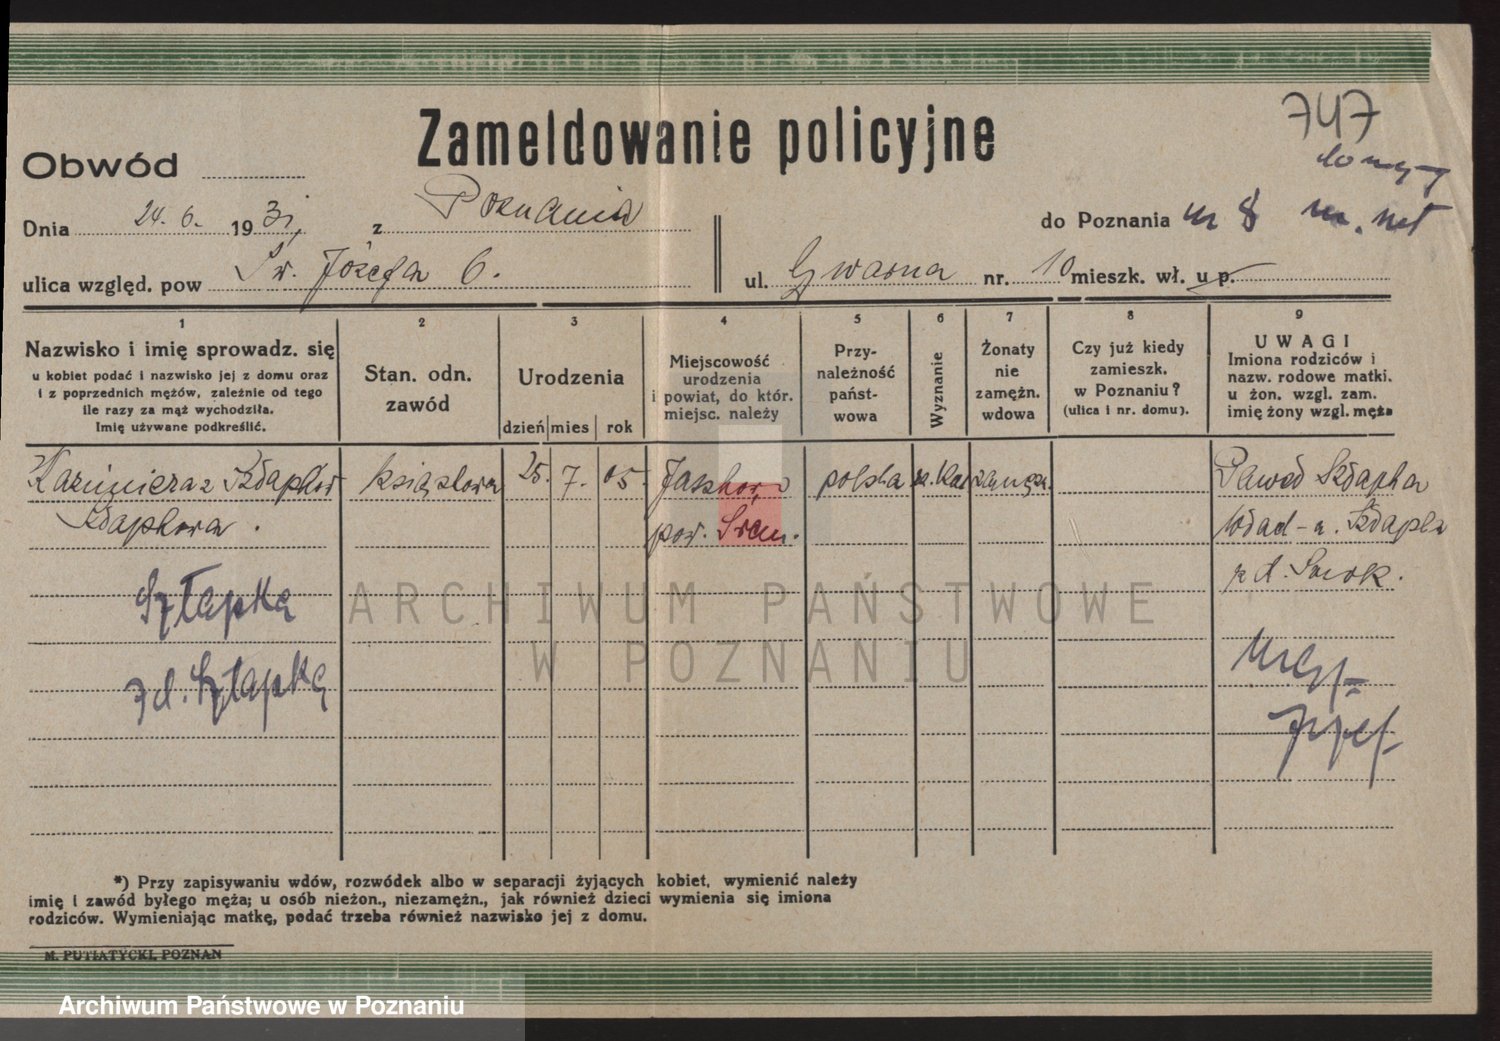 747
Zameldowanie policyjne
Obwód
Dnia 24. 6. 1931, z Poznania
do Poznania
ulica względ. pow Św. Józefa 6.
ul. Gwarna nr. 10 mieszk. wł. u p.
1 2 3 4 5 6 7 8 9
Nazwisko i imię sprowadz. się
u kobiet podać i nazwisko jej z domu oraz
i z poprzednich mężów, zależnie od tego
ile razy za mąż wychodziła.
Imię używane podkreślić.
Stan. odn.
zawód
Urodzenia
dzień mies rok
Miejscowość
urodzenia
i powiat, do któr.
miejsc. należy
Przy-
należność
państ-
wowa
Wyznanie
Żonaty
nie
zamężn.
wdowa
Czy już kiedy
zamieszk.
w Poznaniu?
(ulica i nr. domu).
UWAGI
Imiona rodziców i
nazw. rodowe matki.
u żon. wzgl. zam.
imię żony wzgl. męża
Kazimiera z
książkowa 25. 7. 05. polska rz. kat
pow. Śrem.
Szłapką
z d. Szłapką
ARCHIWUM PAŃSTWOWE
W POZNANIU
*) Przy zapisywaniu wdów, rozwódek albo w separacji żyjących kobiet, wymienić należy
imię i zawód byłego męża; u osób nieżon., niezamężn., jak również dzieci wymienia się imiona
rodziców. Wymieniając matkę, podać trzeba również nazwisko jej z domu.
M. PUTIATYCKI, POZNAŃ
Archiwum Państwowe w Poznaniu